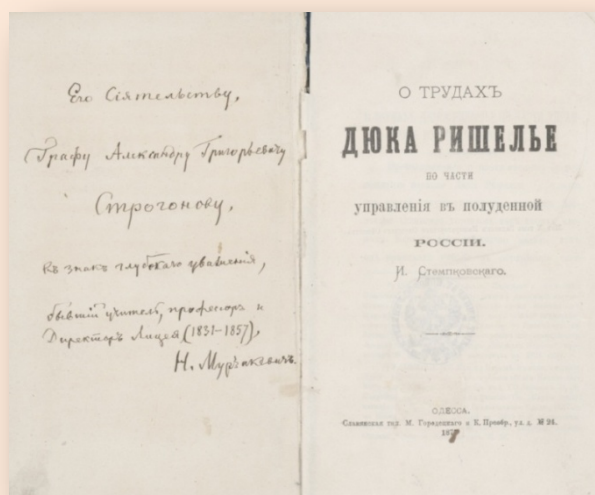 Его Сіятельству,
Графу Александру Григорьевичу
Строгонову,
въ знакъ глубокаго уваженія,
бывшій учитель, профессоръ и
Директоръ Лицея (1831–1857),
Н. Мурзакевичъ.
О ТРУДАХЪ
ДЮКА РИШЕЛЬЕ
ПО ЧАСТИ
управленія въ полуденной
РОССІИ.
И. Стемпковскаго.
ОДЕССА.
Славянская тип. М. Городецкаго и К. Преобр. ул. д. № 24.